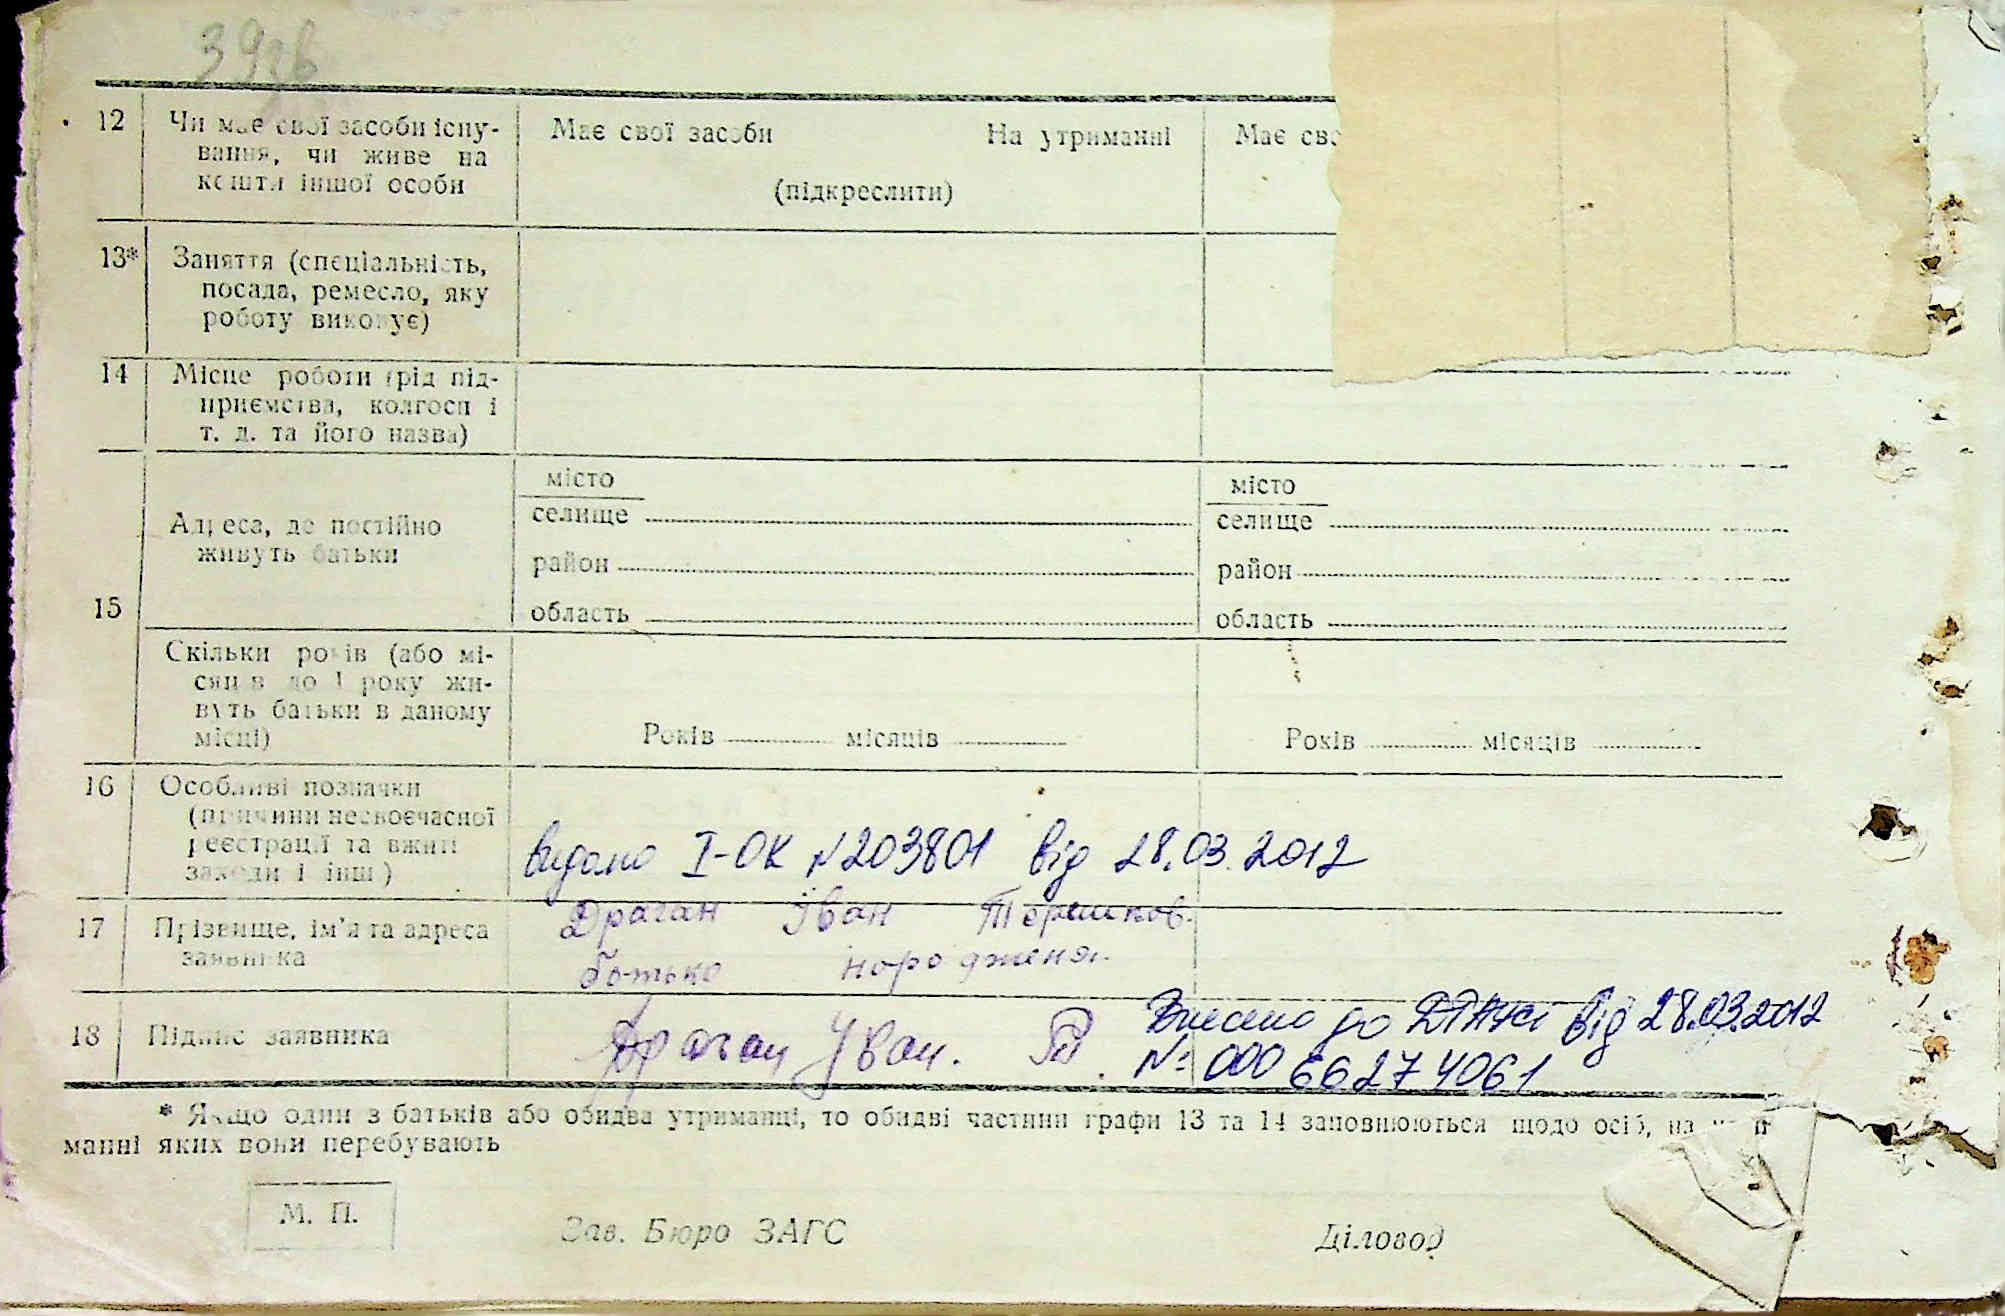 12 Чи має свої засоби існу-
вання, чи живе на
кошти іншої особи
Має свої засоби На утриманні
(підкреслити)
Має сво
13* Заняття (спеціальність,
посада, ремесло, яку
роботу виконує)
14 Місце роботи (рід під-
приємства, колгосп і
т. д. та його назва)
15 Адреса, де постійно
живуть батьки
місто
селище
район
область
місто
селище
район
область
Скільки років (або мі-
сяців до 1 року жи-
вуть батьки в даному
місці)
Років місяців
Років місяців
16 Особливі позначки
(причини несвоєчасної
реєстрації та вжиті
заходи і інш)
видано І-ОК №203801 від 28.03.2012
17 Прізвище, ім'я та адреса
заявника
Драган Іван Терешков.
батько народження.
18 Підпис заявника
Драган Іван.
Внесено до від 28.03.2012
№: 000 66274061
* Якщо один з батьків або обидва утриманці, то обидві частини графи 13 та 14 заповнюються щодо осіб, на
манні яких вони перебувають
М. П.
Зав. Бюро ЗАГС Діловод